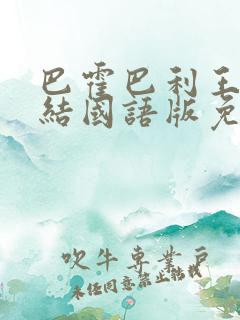 巴霍巴利王
結國語版免
吹牛專業戶
未任同意禁止轉載